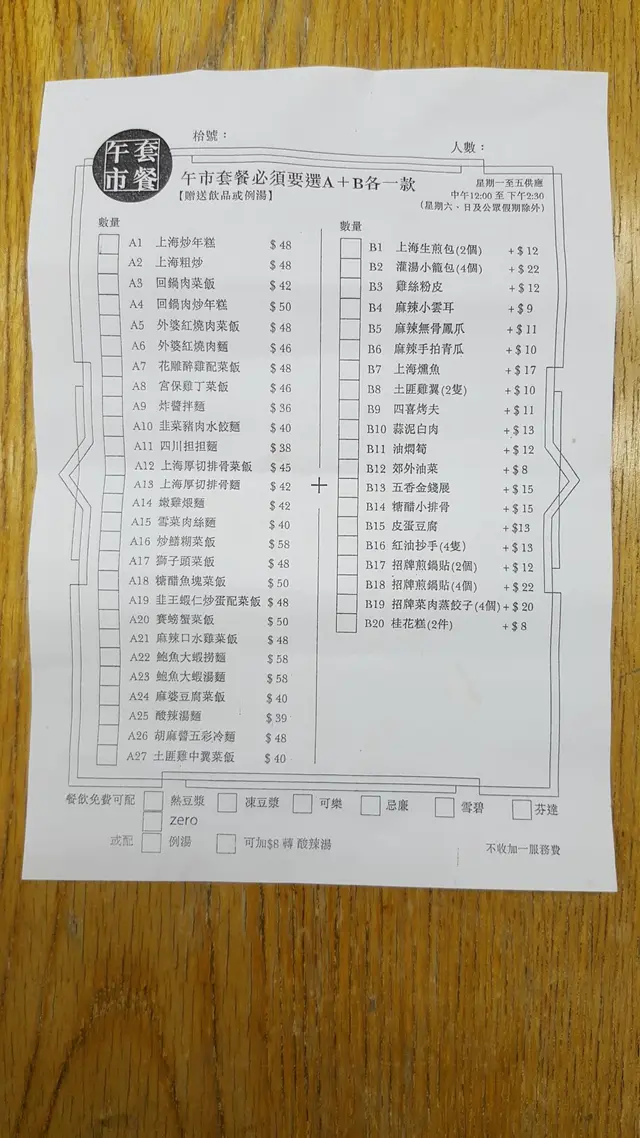 枱號：
人數：
午市套餐
午市套餐必須要選A＋B各一款
【贈送飲品或例湯】
星期一至五供應
中午12:00 至 下午2:30
（星期六、日及公眾假期除外）
數量
A1 上海炒年糕 $ 48
A2 上海粗炒 $ 48
A3 回鍋肉菜飯 $ 42
A4 回鍋肉炒年糕 $ 50
A5 外婆紅燒肉菜飯 $ 48
A6 外婆紅燒肉麵 $ 46
A7 花雕醉雞配菜飯 $ 48
A8 宮保雞丁菜飯 $ 46
A9 炸醬拌麵 $ 36
A10 韭菜豬肉水餃麵 $ 40
A11 四川担担麵 $ 38
A12 上海厚切排骨菜飯 $ 45
A13 上海厚切排骨麵 $ 42
A14 嫩雞煨麵 $ 42
A15 雪菜肉絲麵 $ 40
A16 炒鱔糊菜飯 $ 58
A17 獅子頭菜飯 $ 48
A18 糖醋魚塊菜飯 $ 50
A19 韭王蝦仁炒蛋配菜飯 $ 48
A20 賽螃蟹菜飯 $ 50
A21 麻辣口水雞菜飯 $ 48
A22 鮑魚大蝦撈麵 $ 58
A23 鮑魚大蝦湯麵 $ 58
A24 麻婆豆腐菜飯 $ 40
A25 酸辣湯麵 $ 39
A26 胡麻醬五彩冷麵 $ 48
A27 土匪雞中翼菜飯 $ 40
+
數量
B1 上海生煎包(2個) + $ 12
B2 灌湯小籠包(4個) + $ 22
B3 雞絲粉皮 + $ 12
B4 麻辣小雲耳 + $ 9
B5 麻辣無骨鳳爪 + $ 11
B6 麻辣手拍青瓜 + $ 10
B7 上海燻魚 + $ 17
B8 土匪雞翼(2隻) + $ 10
B9 四喜烤夫 + $ 11
B10 蒜泥白肉 + $ 13
B11 油燜筍 + $ 12
B12 郊外油菜 + $ 8
B13 五香金錢展 + $ 15
B14 糖醋小排骨 + $ 15
B15 皮蛋豆腐 + $13
B16 紅油抄手(4隻) + $ 13
B17 招牌煎鍋貼(2個) + $ 12
B18 招牌煎鍋貼(4個) + $ 22
B19 招牌菜肉蒸餃子(4個) + $ 20
B20 桂花糕(2件) + $ 8
餐飲免費可配 熱豆漿 凍豆漿 可樂 忌廉 雪碧 芬達
zero
或配 例湯 可加$8 轉 酸辣湯
不收加一服務費